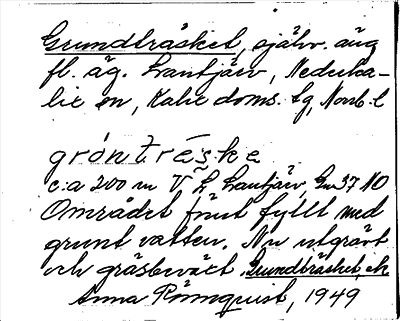 Grundträsket, självr. äng
fl. äg. Lantjärv, Nederka-
lix sn, Kalix doms. tg, Norrb. l
gróntréske
c:a 200 m V Lantjärv, 37 NO
Området förut fyllt med
grunt vatten. Nu utgrävt
och gräsbevuxt. Grundträsket, ek
Anna Römquist, 1949